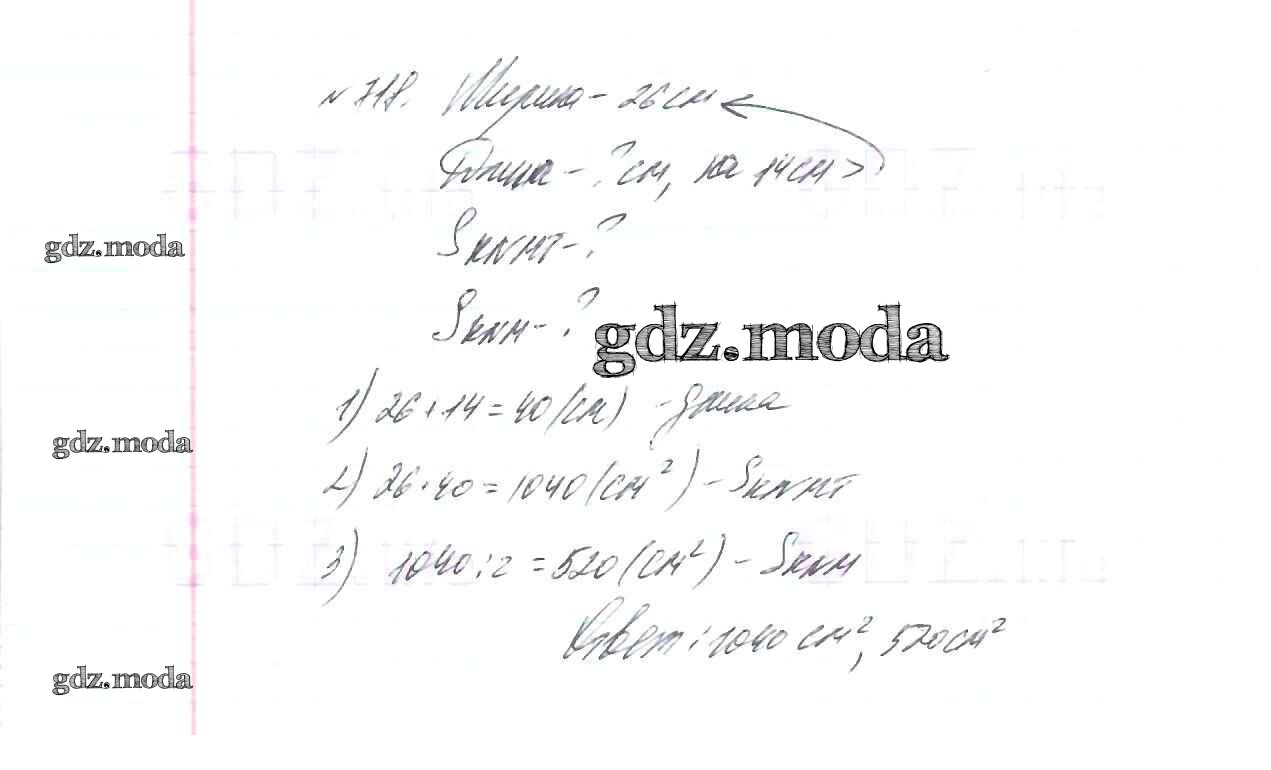 № 718. Ширина - 26 см
Длина - ? см, на 14 см >
SKNMT - ?
SKNM - ?
gdz.moda
gdz.moda
1) 26 + 14 = 40 (см) - длина
gdz.moda
2) 26 · 40 = 1040 (см²) - SKNMT
3) 1040 : 2 = 520 (см²) - SKNM
Ответ: 1040 см², 520 см²
gdz.moda